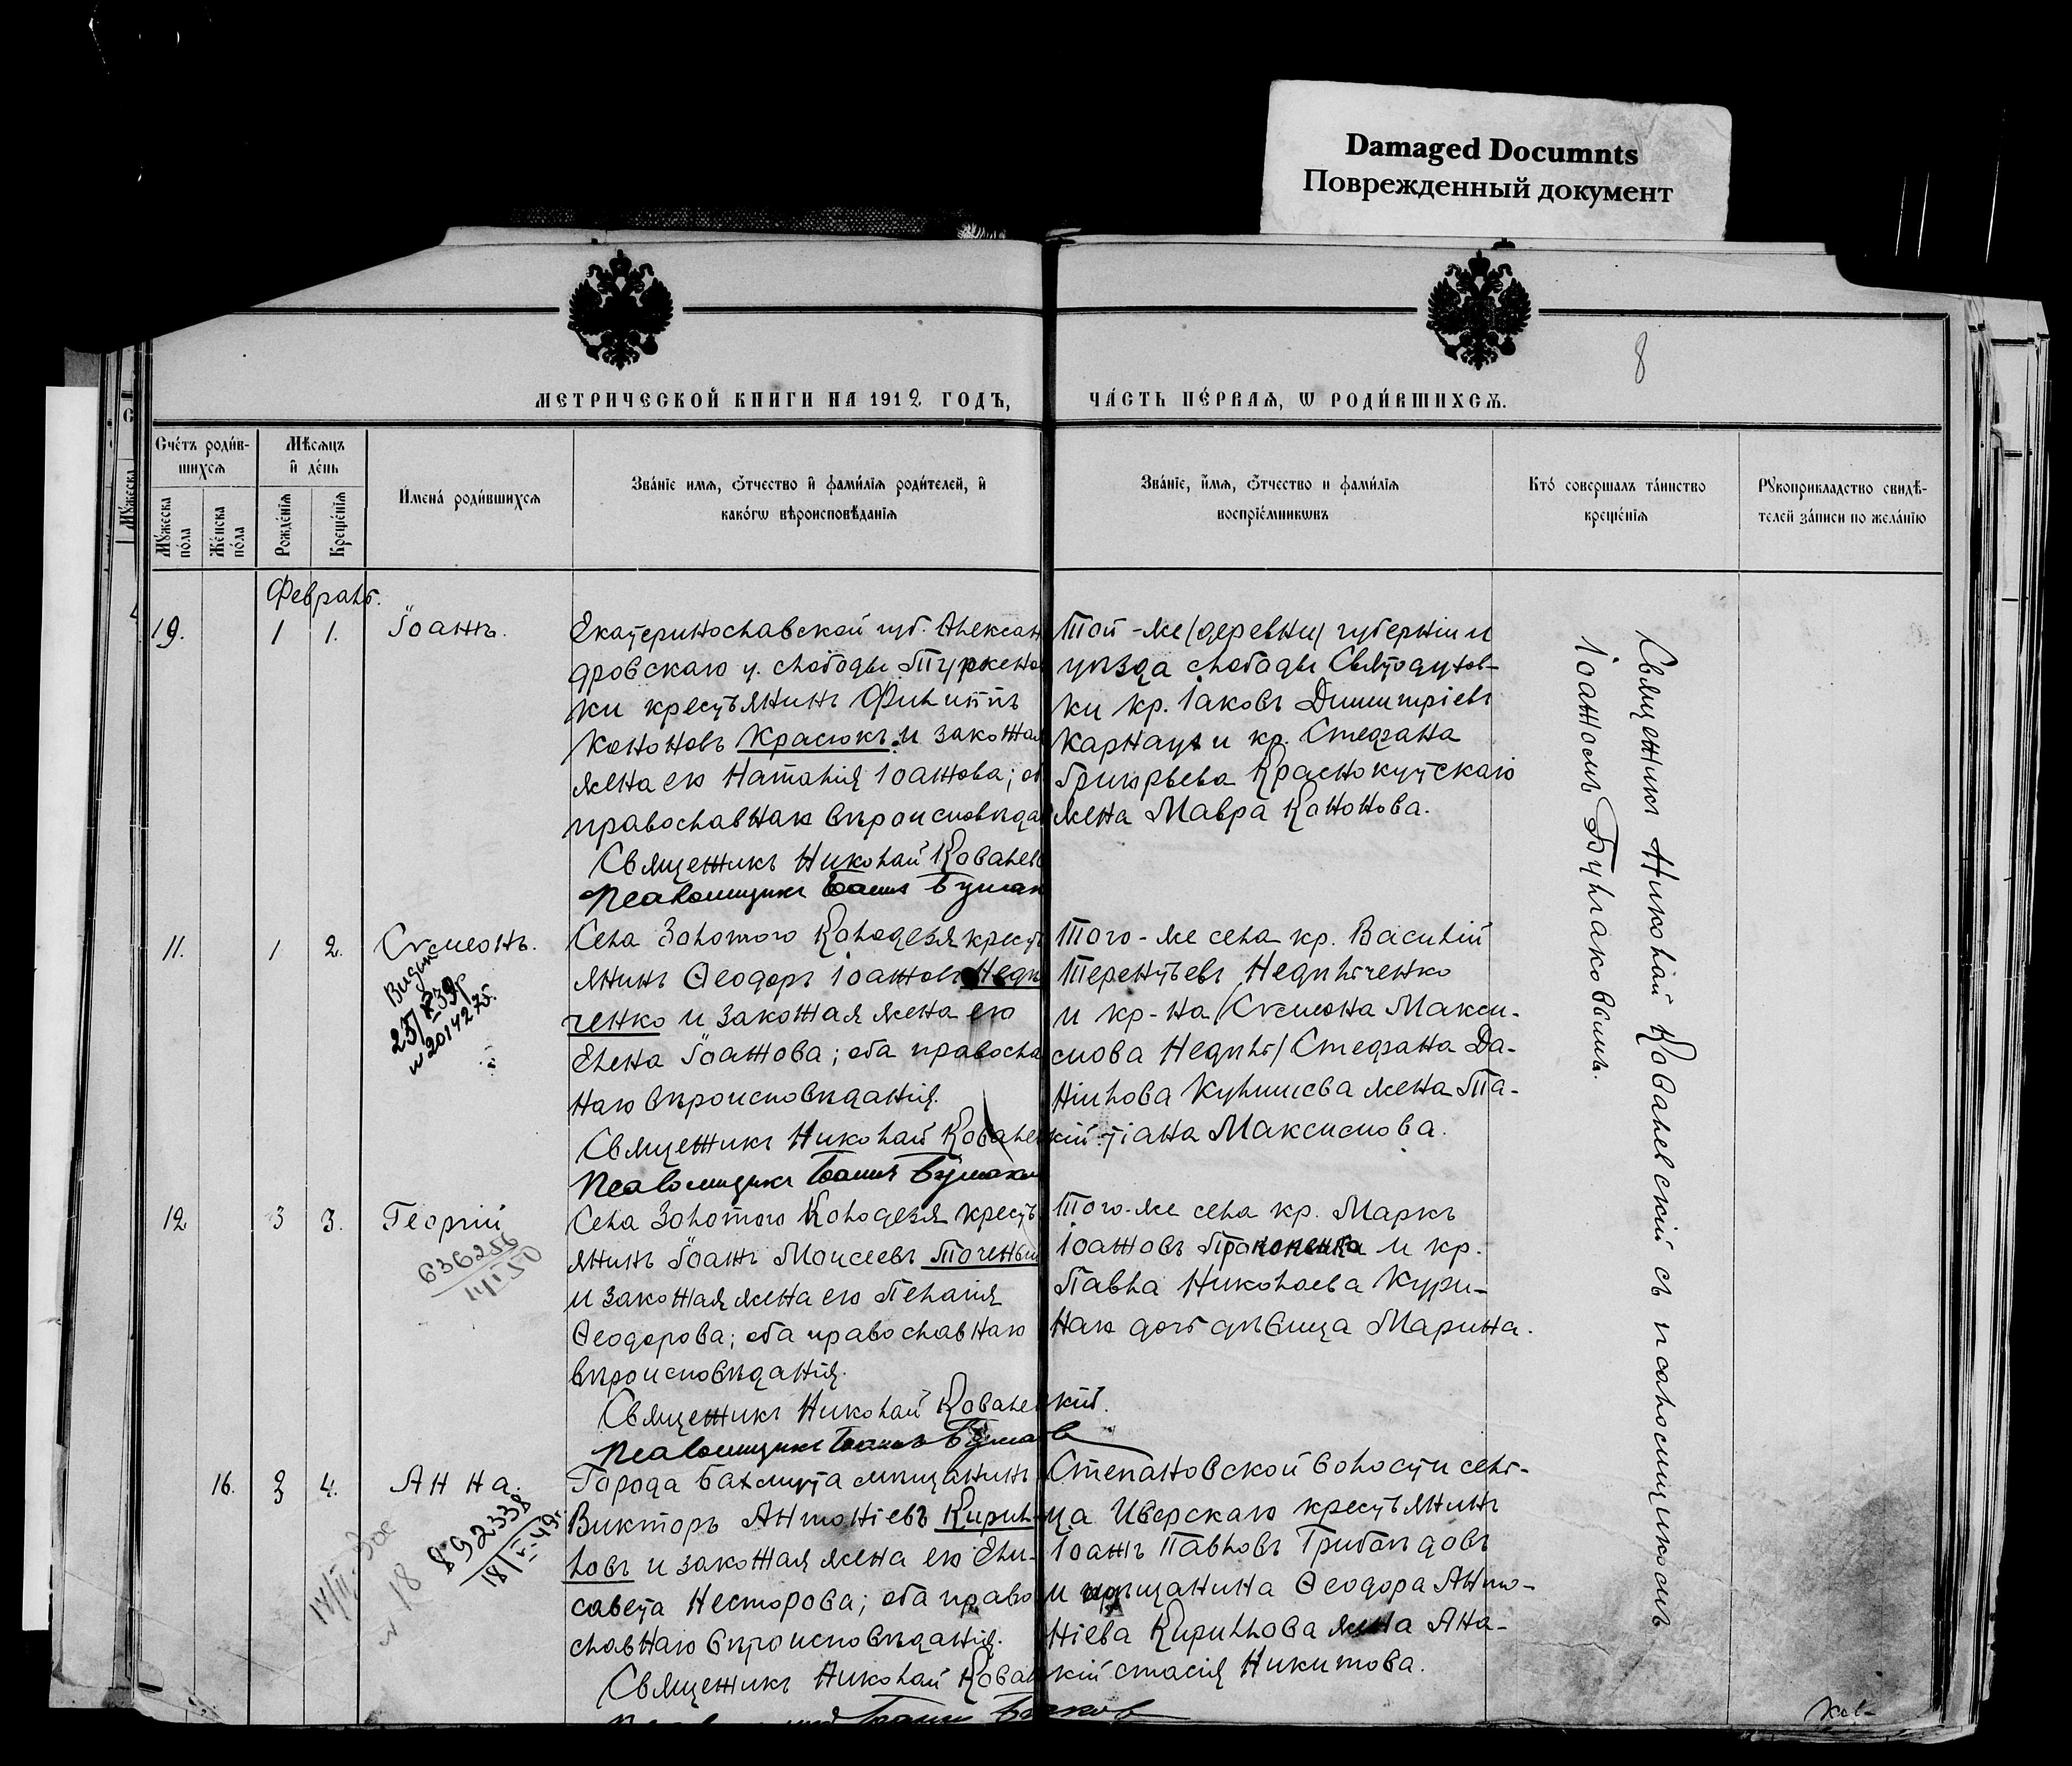 Damaged Documnts
Поврежденный документ
8
МЕТРИЧЕСКОЙ КНИГИ НА 1912 ГОДЪ, ЧАСТЬ ПЕРВАЯ, Ѡ РОДИВШИХСЯ.
Счетъ родив-
шихся
Мѣсяцъ
и день
Мужеска
пола
Женска
пола
Рожденія
Крещенія
Имена родившихся
Званіе имя, отчество и фамилія родителей, и
какогѡ вѣроисповѣданія
Званіе, имя, отчество и фамилія
воспріемниковъ
Кто совершалъ таинство
крещенія
Рукоприкладство свидѣ-
телей записи по желанію
Февраль.
19. 1 1. Іоаннъ.
Екатеринославской губ. Алексан
дровскаго у. слободы Туркено
ки крестьянинъ Филиппъ
Кононовъ Красюкъ и законная
жена его Наталія Іоаннова; об
православнаго вѣроисповѣда
Священникъ Николай Ковалев
Псаломщикъ Іоаннъ Булгак
Той-же (деревни) губерніи и
уѣзда слободы Святодухов-
ки кр. Іаковъ Димитріевъ
Карнаух и кр. Стефана
Григорьева Краснокутскаго
жена Мавра Кононова.
Священникъ Николай Ковалевскій съ псаломщикомъ
Іоанномъ Булгаковымъ.
11. 1 2. Сѵмеонъ.
2014275
Села Золотого Колодезя кресть
янинъ Ѳеодоръ Іоанновъ Недѣ
ченко и законная жена его
Елена Іоаннова; оба правосла
наго вѣроисповѣданія.
Священникъ Николай Ковале
Псаломщикъ Іоаннъ Булгаков
Того-же села кр. Василій
Терентьевъ Недѣльченко
и кр-на (Сѵмеона Макси-
мова Недѣль) Стефана Да-
ніилова Кулишева жена Та-
кій тіана Максимова.
12 3 3. Георгій
636256
Села Золотого Колодезя кресть
янинъ Іоаннъ Моисеевъ Точеный
и законная жена его Пелагія
Ѳеодорова; оба православнаго
вѣроисповѣданія.
Священникъ Николай Ковалевскій.
Псаломщикъ Іоаннъ Булгаков
Того-же села кр. Маркъ
Іоанновъ Прокопенко и кр.
Павла Николаева Кури-
наго дочь дѣвица Марина.
16. 3 4. Анна.
892338
18/V-49г.
Города Бахмута мѣщанинъ
Викторъ Антоніевъ Кирил-
ловъ и законная жена его Ели-
савета Несторова; оба право
славнаго вѣроисповѣданія.
Священникъ Николай Ковал
Степановской волости сель-
ца Иверскаго крестьянинъ
Іоаннъ Павловъ Грибоѣдовъ
и мѣщанина Ѳеодора Анто-
ніева Кириллова жена Ана-
кій стасія Никитова.